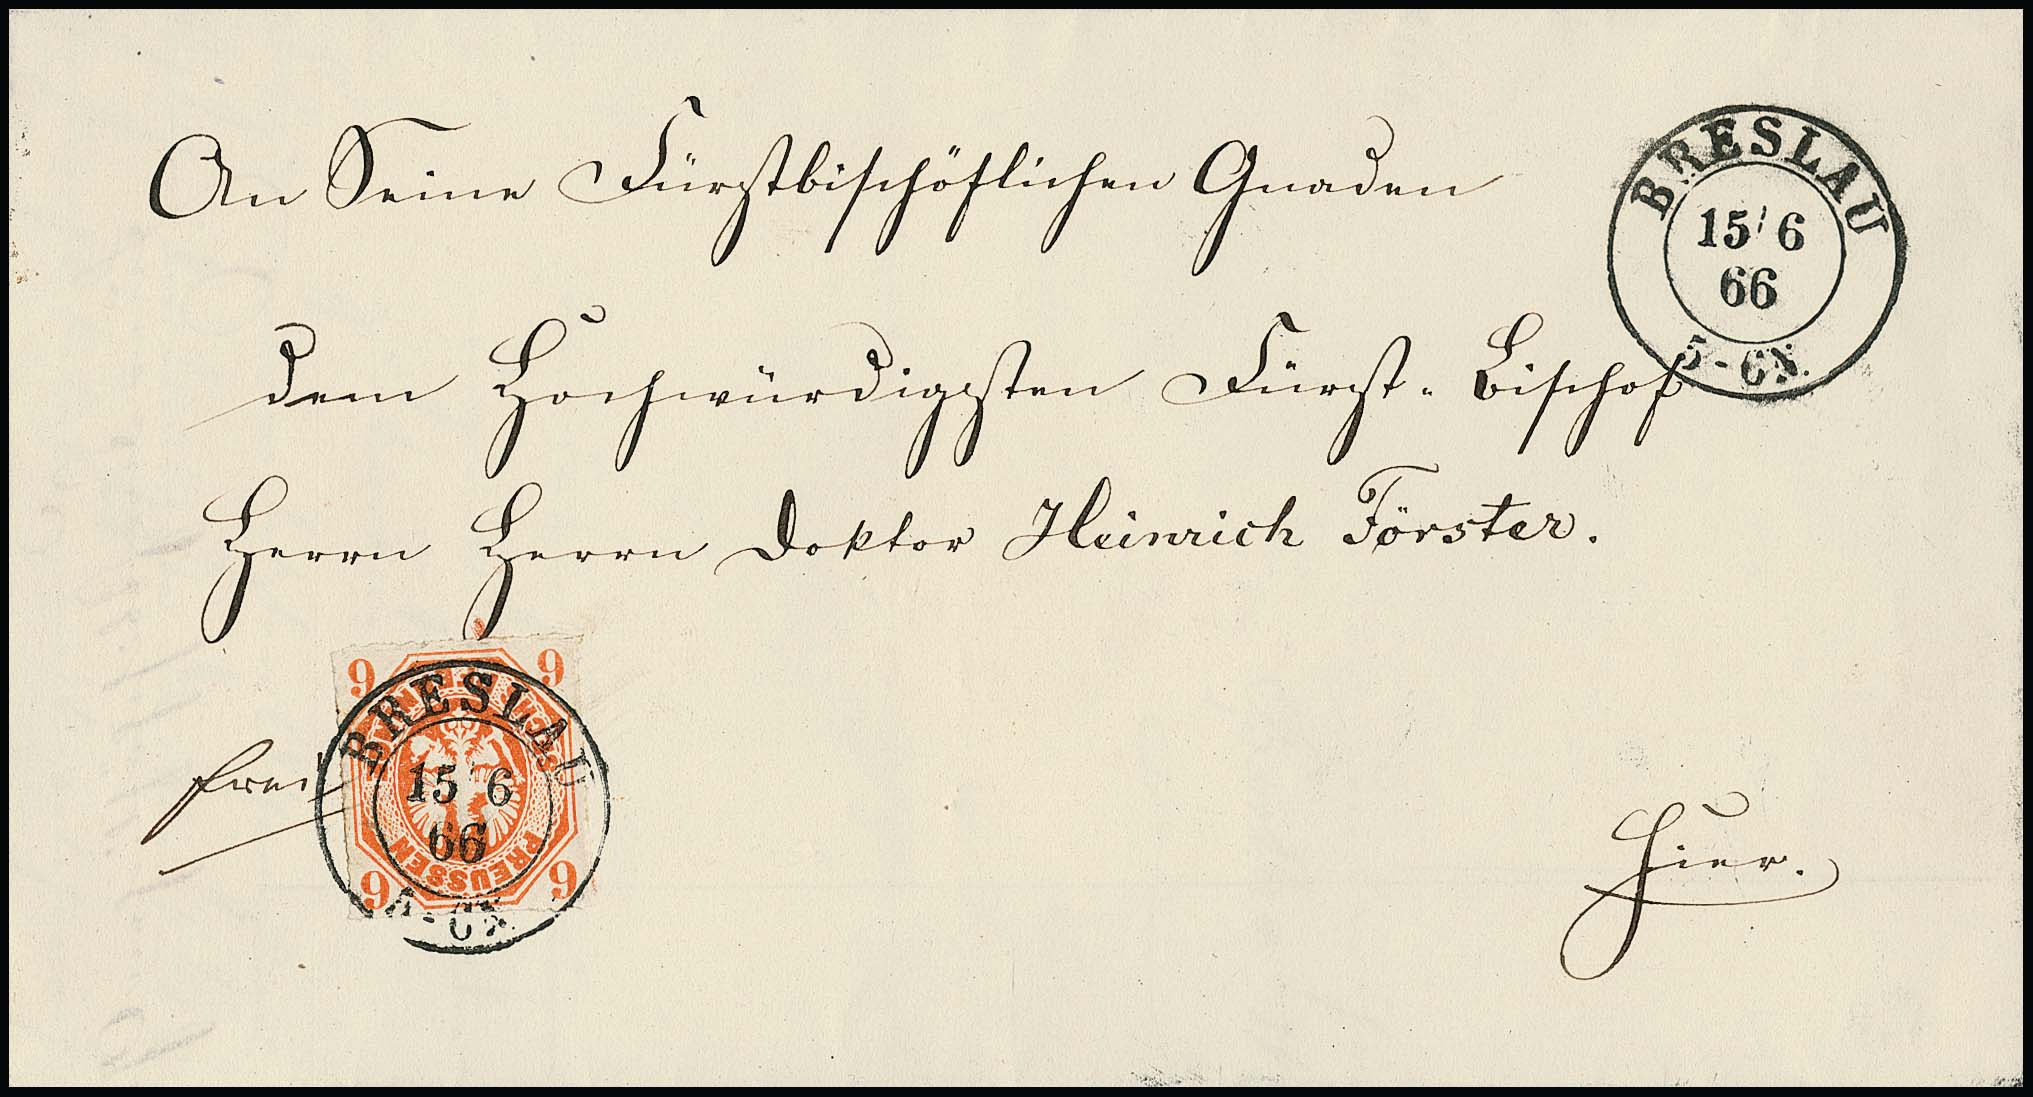 An Seine Fürstbischöflichen Gnaden
dem Hochwürdigsten Fürst-Bischof
Herrn Herrn Doktor Heinrich Förster.
frei
Hier.
BRESLAU
15 6
66
5-6N.
9 9
BRESLAU
15 6
66
PREUSSEN
9 9
5-6N.